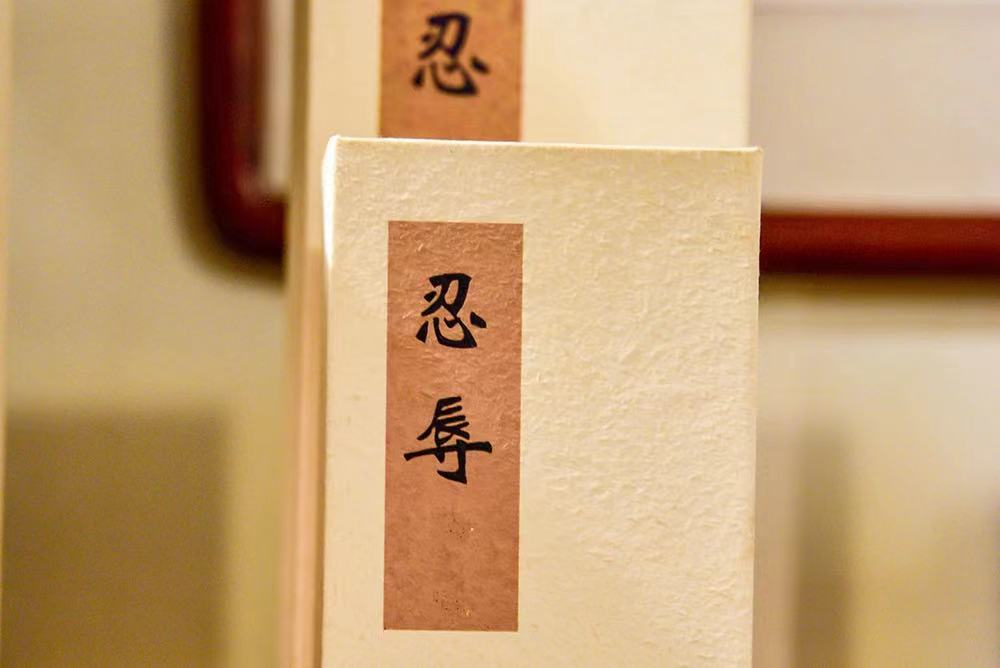 忍
忍辱